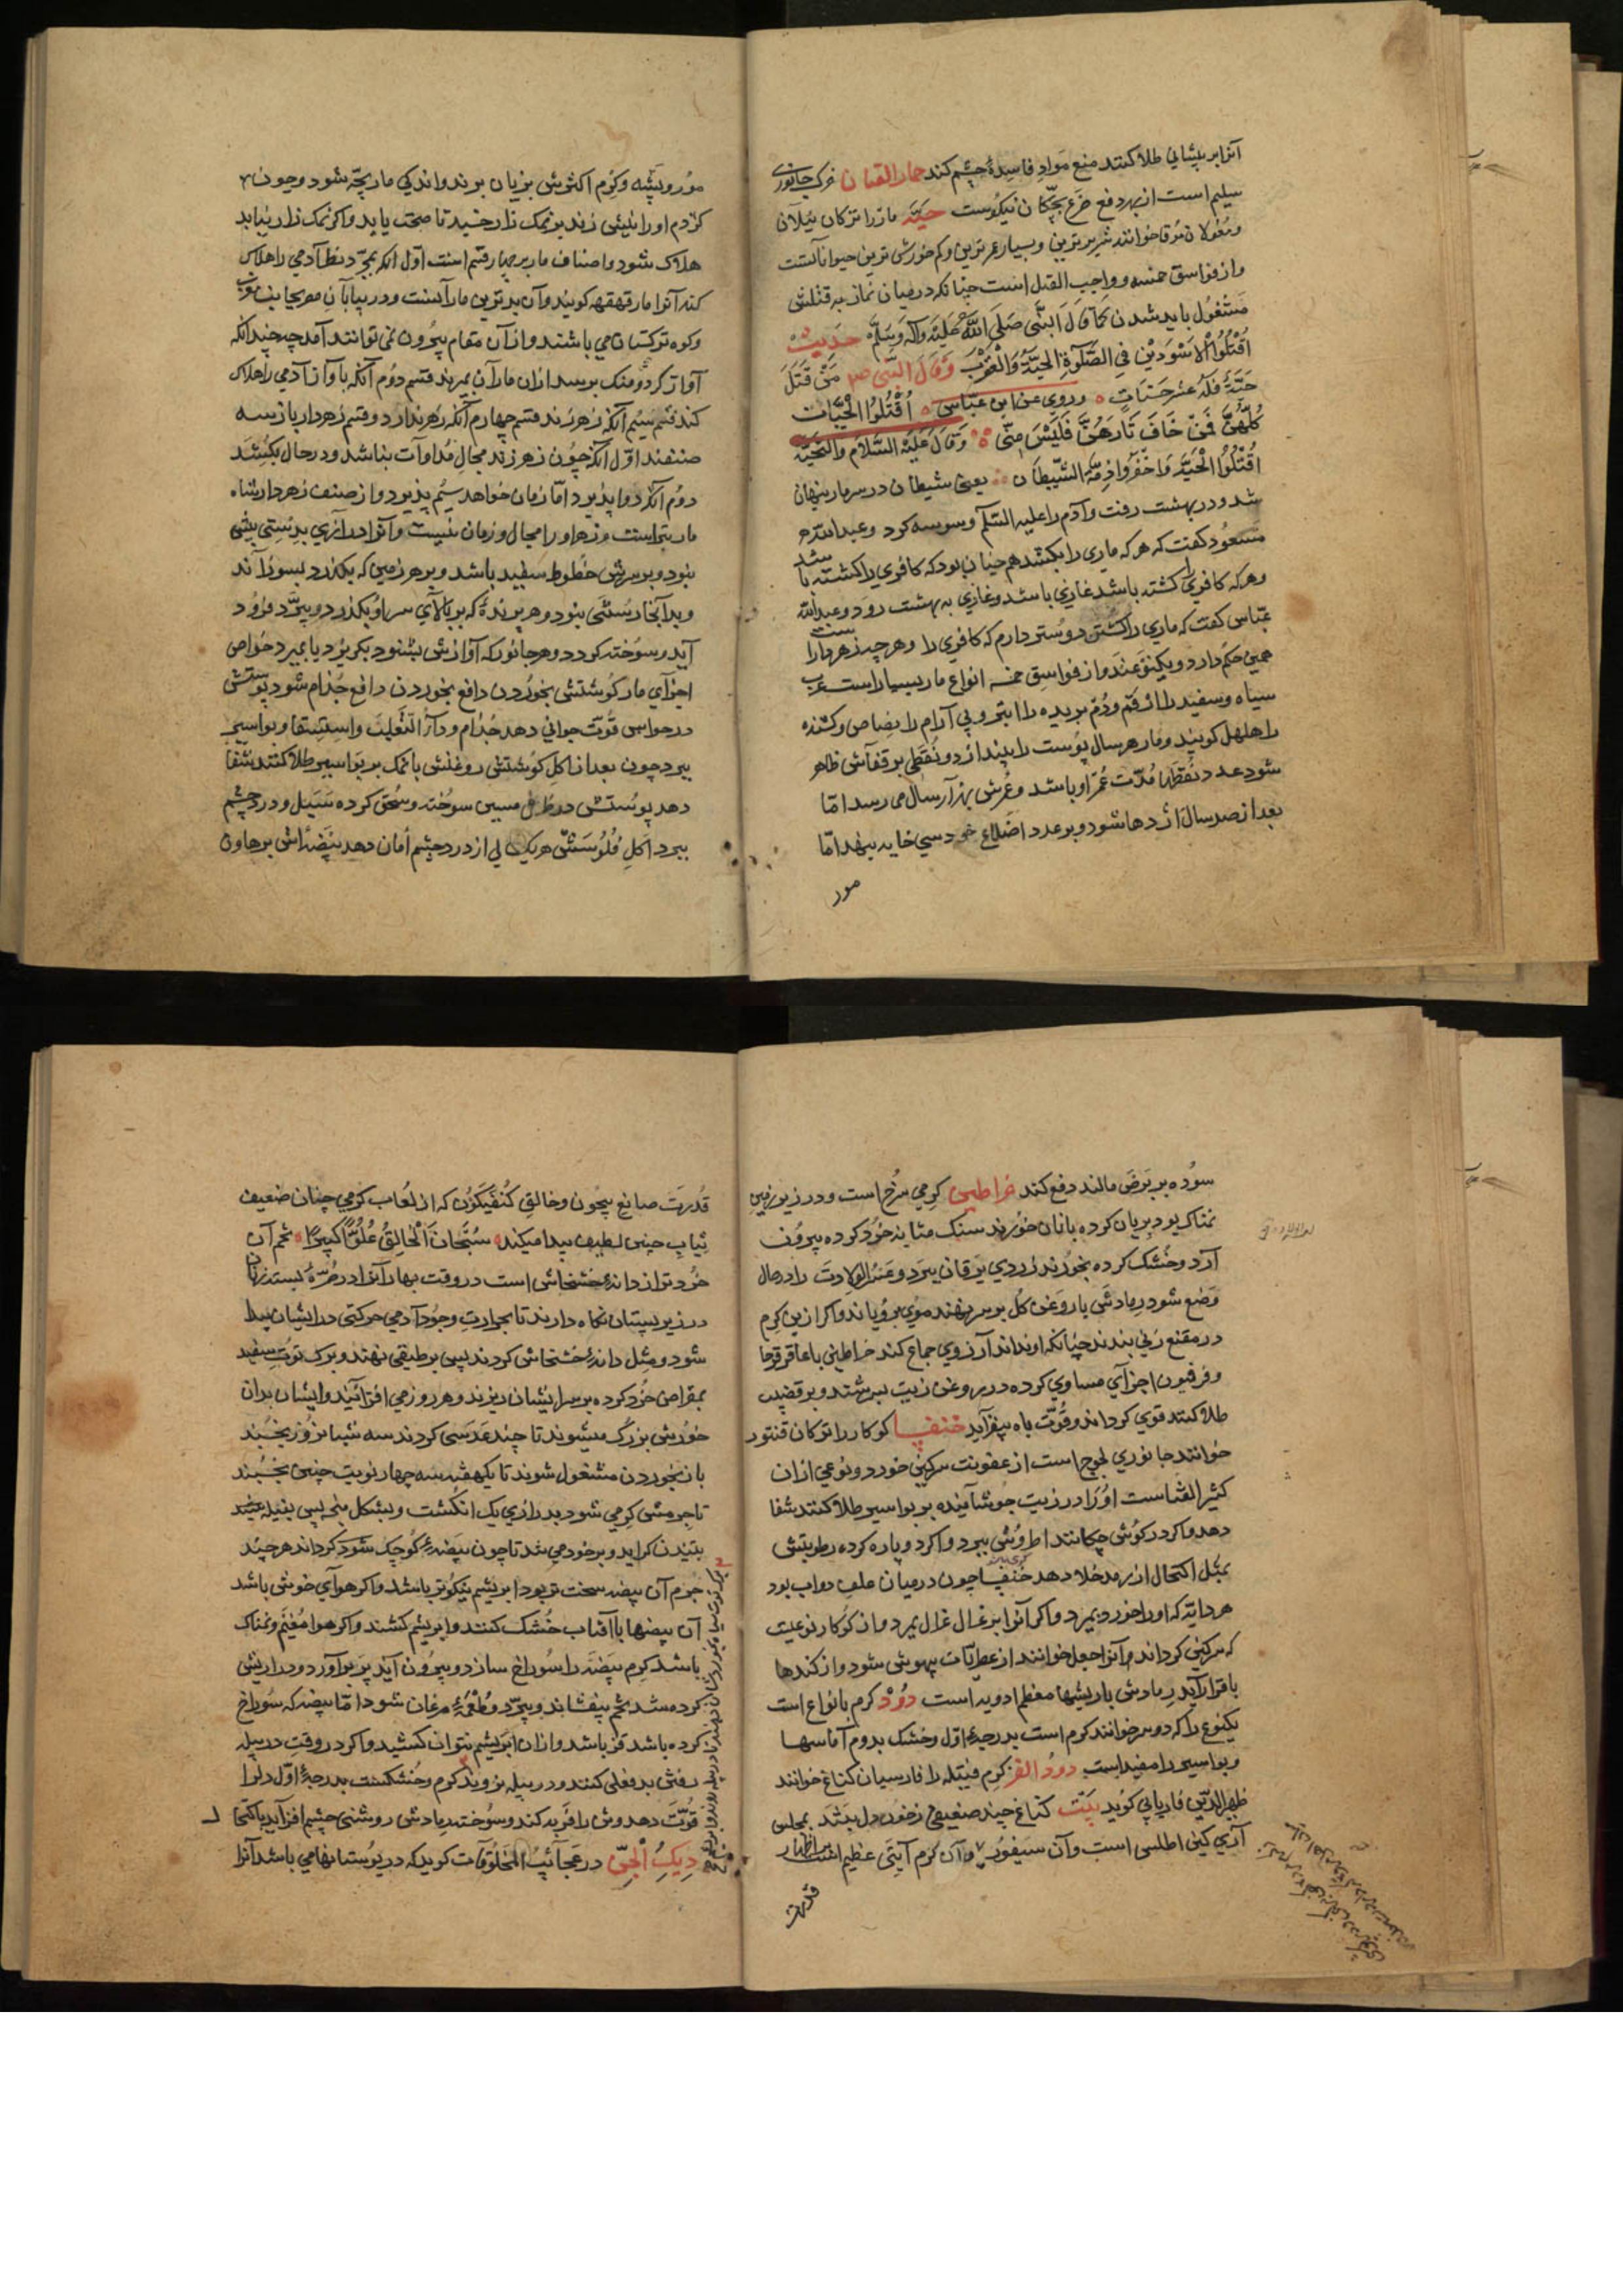 آنرا بر پیشانی طلا کنند منع مواد فاسدهٔ چشم کند حمار القبان خرک جانوری
سلیم است از بهر دفع خرع بچکان نیکوست حیّه مار را ترکان ییلان
و مغولان موقا خوانند شریرترین و بسیار عمرترین و کم خورش ترین حیواناتست
و از فواسق خمسه و واجب القتل است چنانکه در میان نماز به قتلش
مشغول باید شدن کما قال النبی صلی الله علیه وآله وسلم حدیث
اقتلوا الاسودین فی الصلوة الحیة والعقرب وقال النبی ص من قتل
حیّة فله عشر حسنات وروی عن ابن عباس اقتلوا الحیات
کلهن فمن خاف ثارهن فلیس منی وقال علیه السلام والتحیه
اقتلوا الحیّة واخفروا ذمة الشیطان یعنی شیطان در سر مار پنهان
شد و در بهشت رفت و آدم را علیه السلم وسوسه کرد و عبد الله
مسعود کفت که هر که ماری را بکشد همچنان بود که کافری را کشته باشد
و هر که کافری را کشته باشد غازی باشد و غازی به بهشت رود و عبد الله
عباس کفت که ماری را کشتن دوستر دارم که کافری را و هر چه زهردارست
همین حکم دارد و از فواسق خمسه انواع مار بسیار است عرب
سیاه و سفید را ارقم و دم بریده را ابتر و پی آرام را نضناض و کشنده
را هلهل کویند و مار هر سال پوست را بیندازد و نقطی بر قفآش ظاهر
شود عدد نقطها مدّت عمر او باشد و عمرش بهزآر سال می رسد امّا
بعد از صد سال اژدها شود و بر عدد اضلاع خود سی خایه بنهد امّا
مور
مور و پشه و کرم اکثرش بزیان برند و اندکی مار بچّه شود و چون
کژدم او را نیش زند بر نمک زار خسید تا صحت یابد و اکر نمک زار نیابد
هلاک شود و اصناف مار بر چهار قسم است اوّل آنکه بمجرّد نظر آدمی را هلاک
کند آنرا مار قهقهه کویند و آن بدترین مارآنست و در بیابان
و کوه ترکستان می باشند و از آن مقام بیرون نمی توانند آمد چه چندانکه
آواز بر سد ازان مارآن بمیرند قسم دوم آنکه باوآز آدمی را هلاک
کند قسم سیم آنکه زهر زند قسم چهارم آنکه زهر ندارد و قسم زهردار باز سه
صنفند اوّل آنکه چون زهر زند مجال مداوات نباشد و در حال بکشد
دوم آنکه دوا پذیرد امّا زمان خواهد سیم پذیرد و از صنف زهردار شاه
مار بتر است و زهر او را مجال و زمان نیست و آنرا درازی بدستی بیش
نبود و بر سرش خطوط سفید باشد و بر هر زمین که بکذرد بسوزآند
و بدآنجا رستنی نبود و هر پرندهٔ که بر بالآی سر او بکذرد و بپرّد فرود
آید و سوخته کردد و هر جانور که آوازش بشنود بکریزد یا بمیرد خواص
اجزآی مار کوشتش بخوردن دافع جذام شود پوستش
در حواس قوّت جوانی دهد جذام و داء الثعلب و استسقا و بواسیر
ببرد چون بعد از اکل کوشتش روغنش با نمک بر بواسیر طلا کنند شفا
دهد پوستش در ظرف مسین سوخته و سحق کرده سبل و درد چشم
ببرد اکل فلوسش هر یک سالی از درد چشم امان دهد بیضه اش بر هاون
سوده بر برص مالند دفع کند خراطین کرمی سرخ است و در زیر زمین
نمناک بود بریان کرده با نان خورند سنک مثانه خورد کرده بیرون
آرد و خشک کرده بخورند زردی یرقان ببرد و عسر الولادت را در حال
وضع شود رمادش با روغن کل بر سر نهند موی برویاند و اکر ازین کرم
در مقنع زنی بندند چنانکه او نداند آرزوی جماع کند خراطین با عاقرقرحا
و فرفیون اجزآی مساوی کرده در روغن زیت بسرشند و بر قضیب
طلا کنند قوی کرداند و قوّت باه بیفزآید خنفسا کوکار را ترکان قنتور
خوانند جانوری لجوج است از عفونت سرکین خورد و نوعی ازان
کثیر الفساست او را در زیت جوشآنیده بر بواسیر طلا کنند شفا
دهد و اکر در کوش چکانند اطروش ببرد و اکر دو پاره کرده رطوبتش
بمیل اکتحال از رمد خلا دهد خنفسا چون در میان علف دواب بود
هر دابّه که او را خورد بمیرد و از کوکار نوعیست
که سرکین کرداند و آنرا جعل خوانند از عطریات بیهوش شود و از کندها
با قرار آید رمادش با ریشها معظم ادویه است دود کرم بانواع است
یکنوع را که دوسر خوانند کرم است بدرجهٔ اوّل و خشک بدوم آماسها
و بواسیر را مفید است دود القز کرم فیله را فارسیان کناغ خوانند
ظهیر الدین فاریابی کوید بیت کناغ چند ضعیفی ز خون دل بتند بمجلس
آری کین اطلس است و آن سیفور و آن کرم آیتی عظیم است بر اظهار
قدرت
قدرت صانع بیچون و خالق کن فیکون که از لعاب کرمی چنان ضعیف
ثیاب چنین لطیف پیدا میکند سبحان الخالق علوّاً کبیراً تخم آن
خورد تر از دانهٔ خشخاش است در وقت بهار آنرا در صرّه بسته زنان
در زیر پستان نکاه دارند تا بحرارت وجود آدمی حرکتی در ایشان پیدا
شود و مثل دانهٔ خشخاش کردند پس بر طبقی نهند و برک توت سفید
بمقراض خرد کرده بر سر ایشان ریزند و هر روز می افزآئیند و ایشان بدان
خورش بزرک میشوند تا چند عدسی کردند سه شبانروز بخسبند
باز بخوردن مشغول شوند تا یکهفته سه چهار نوبت چنین بخسبند
تا چون کرمی شود بدرازی یک انکشت و بشکل پس بتیله
بتنیدن کراید و بر خود می تند تا چون بیضهٔ کوچک شود کرداند هر چند
جرم آن بیضه سخت تر بود ابریشم نیکوتر باشد و اکر هوآی خوش باشد
آن بیضها با آفتاب خشک کنند و ابریشم کشند و اکر هوا مغیم و نمناک
باشد کرم بیضه را سوراخ سازد و بیرون آید پر برآورد و درازیش
کرده شد تخم بیفشاند و بپرّد و طعمهٔ مرغان شود امّا بیضه که سوراخ
کرده باشد قز باشد و ازان ابریشم نتوان کشید و اکر در وقت در پیله
رفتن بد فعلی کنند و در پیله نروند کرم و خشکست بدرجهٔ اوّل دل را
قوّت دهد و تن را فربه کند و سوخته رمادش روشنی چشم افزآید باکتحال
دیک الجن در عجآئب المخلوقآت کوید که در بوستانها می باشد آنرا